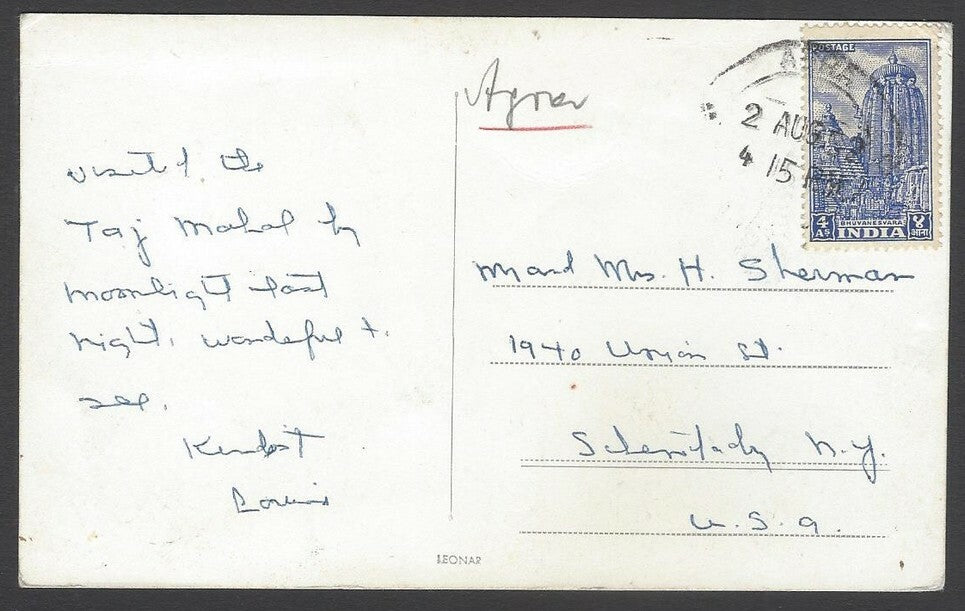 Visited the
Taj Mahal by
moonlight last
night. wonderful to
see.
Kindest
Louis
Agra
AGRA
2 AUG
4 15 PM
POSTAGE
BHUVANESVARA
4 As INDIA ४ आना
Mr and Mrs. H. Sherman
1940 Union St.
Schenectady N.Y.
U.S.A.
LEONAR